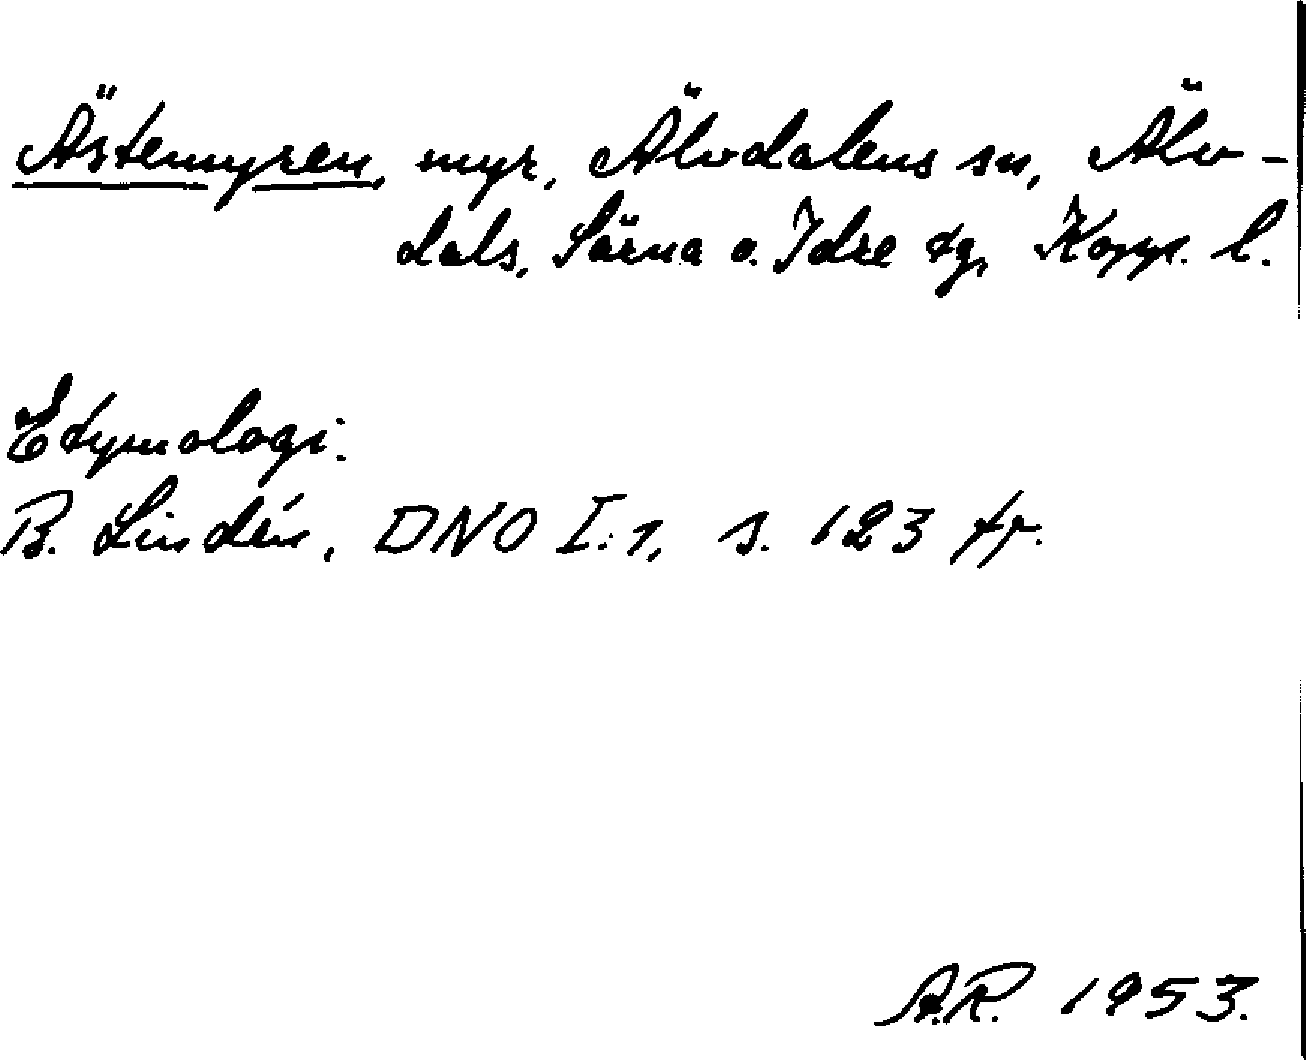 Ästemyren, myr, Älvdalens sn, Älv-
dals, Särna o. Idre tg, Kopp. l.
Etymologi:
B. Lindén, DNO I:1, s. 123 ff.
A.R. 1953.